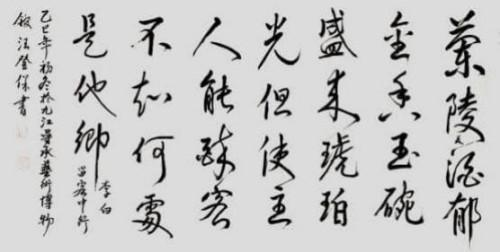 蘭陵美酒郁
金香玉碗
盛来琥珀
光但使主
人能醉客
不知何處
是他鄉
李白
客中行
乙巳年初冬於九江藝術博物
館汪登保書